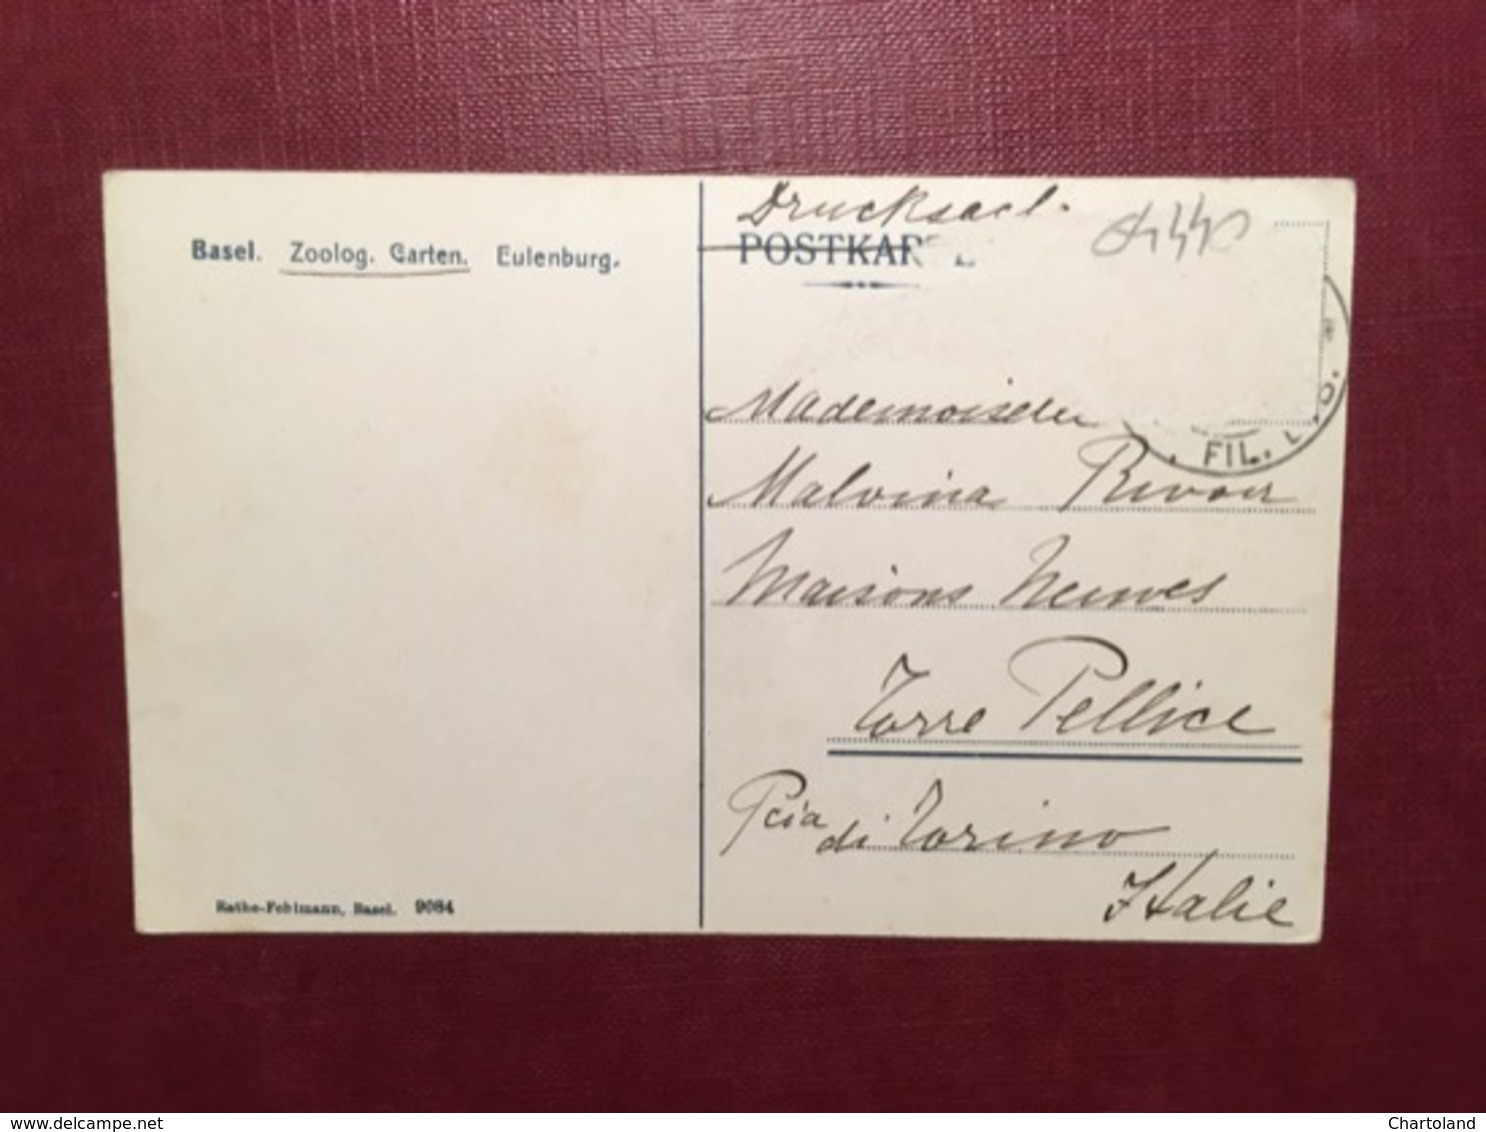 Basel. Zoolog. Garten. Eulenburg.
Rathe-Fehlmann, Basel. 9084
Drucksach.
POSTKARTE
FIL.
Mademoiselle
Malvina Rivoir
Maisons Neuves
Torre Pellice
Pcia di Torino
Italie
www.delcampe.net
Chartoland